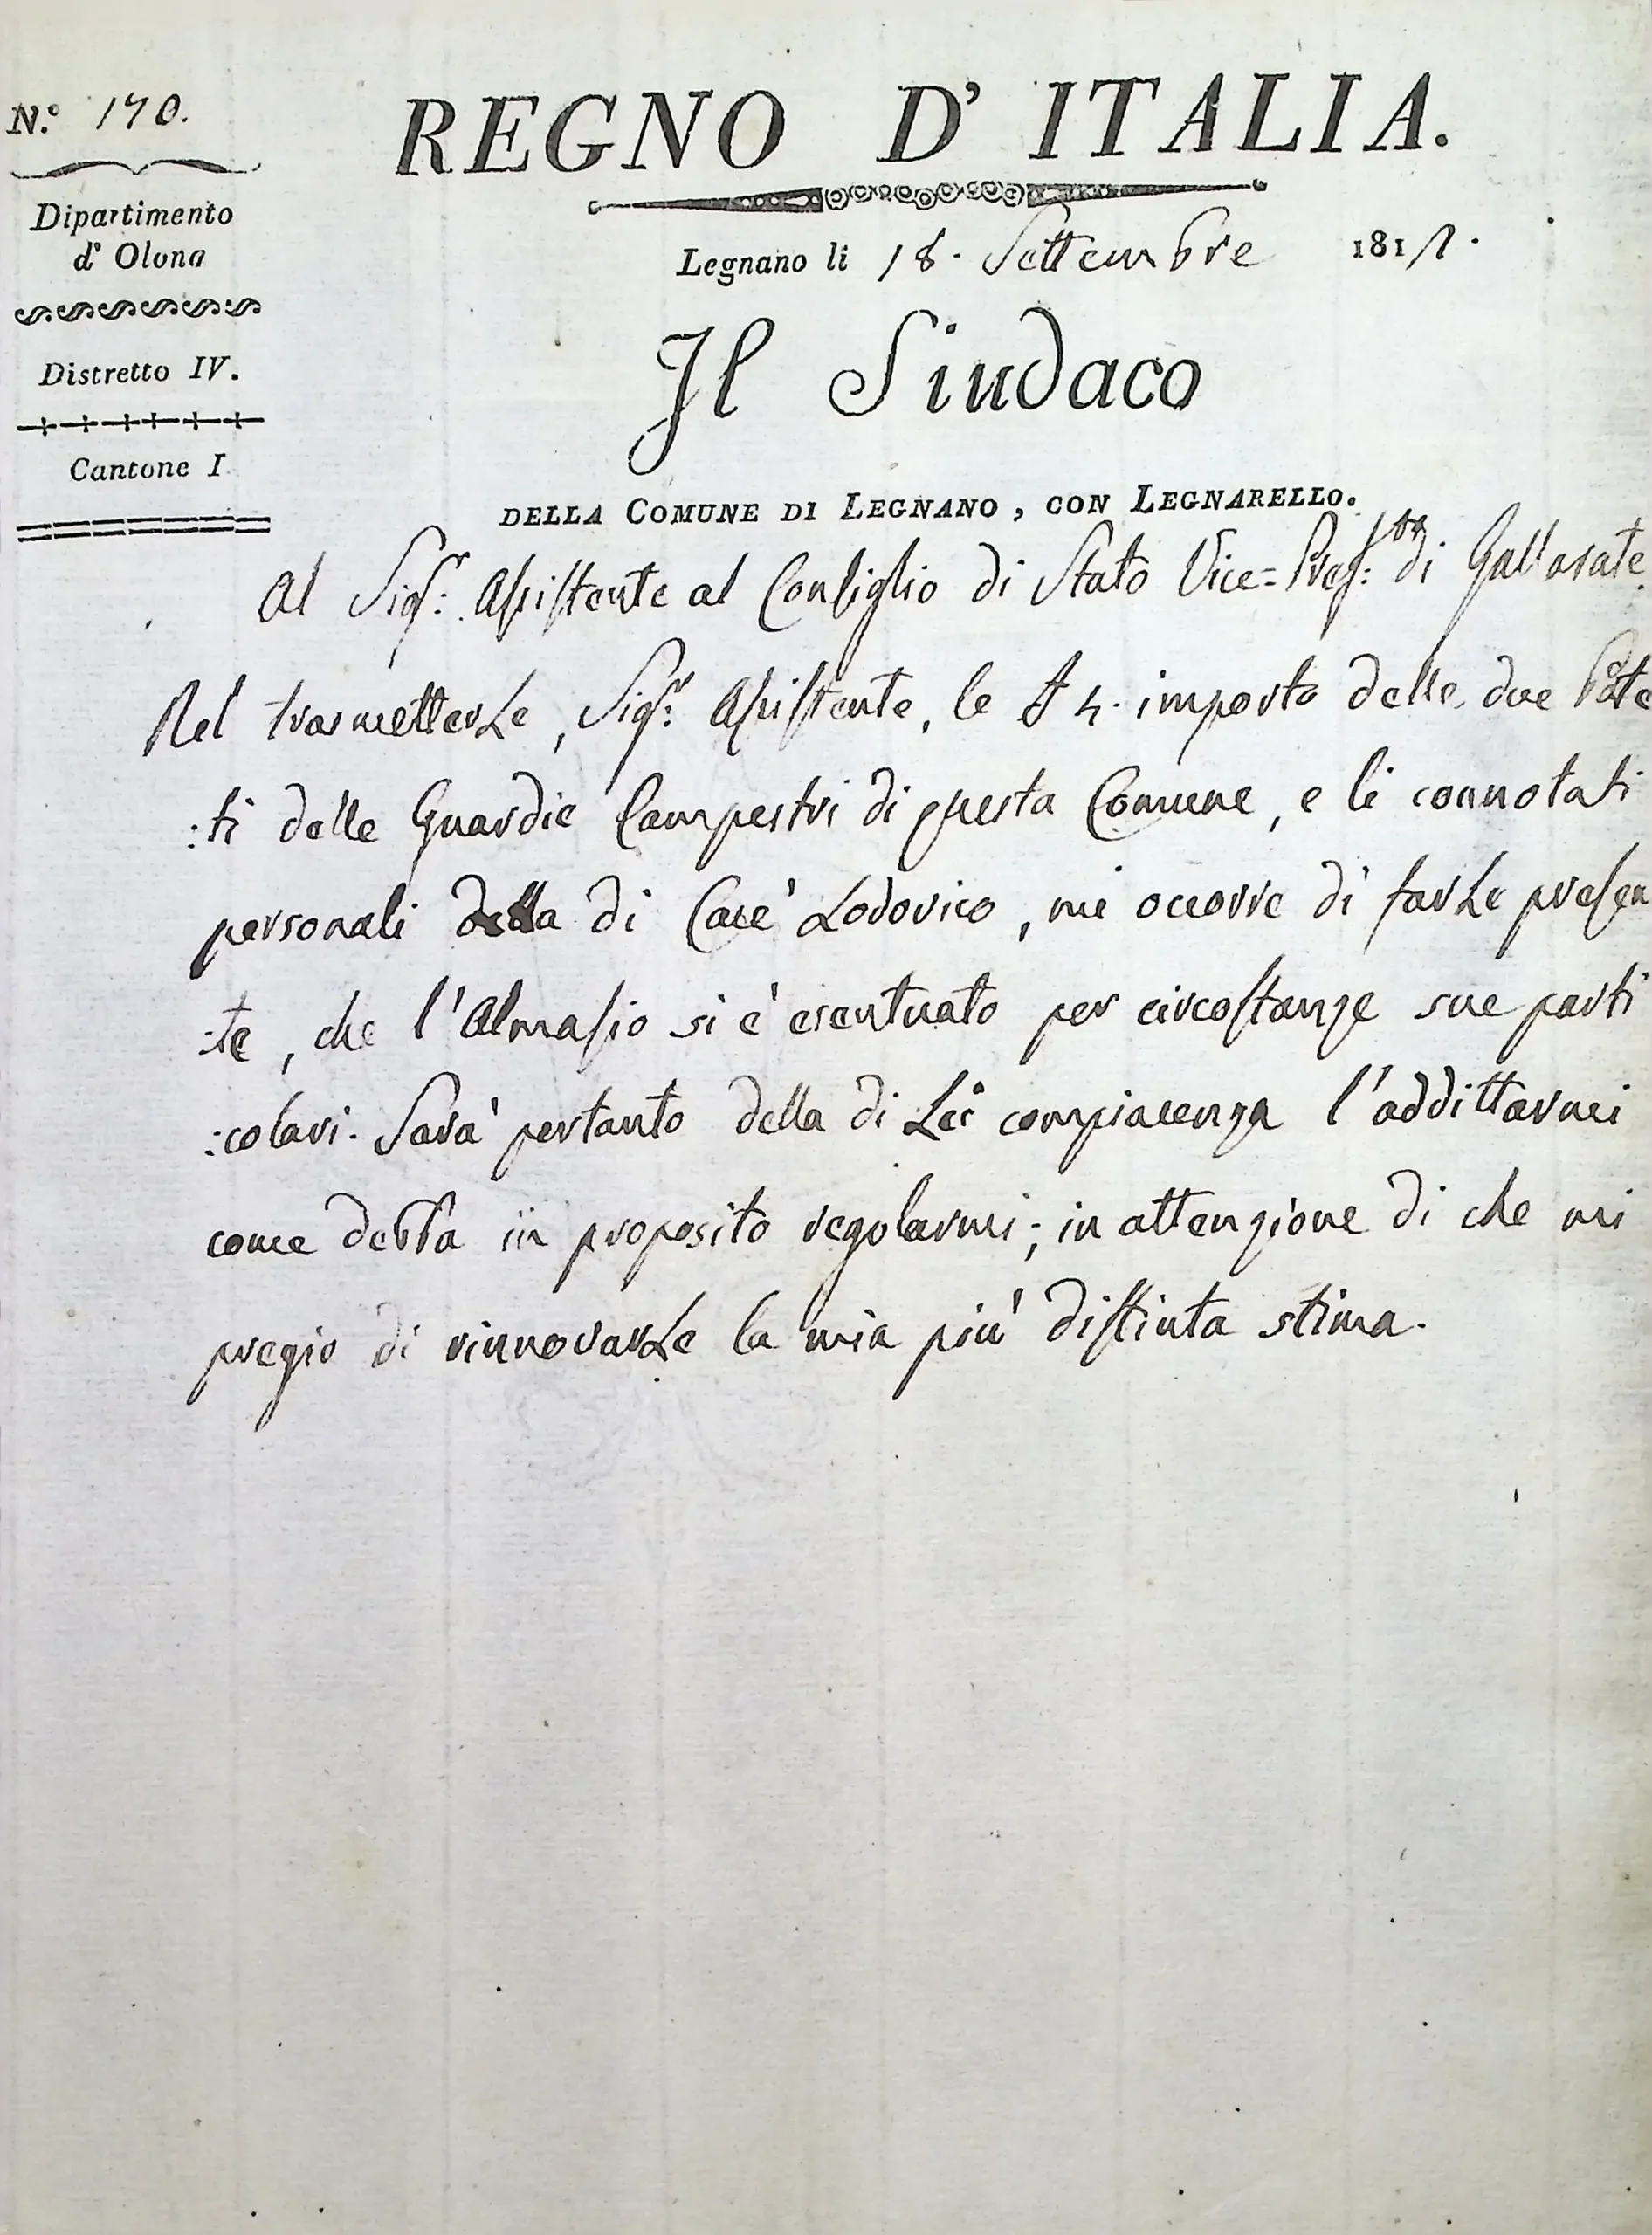 N.º 170.
REGNO D' ITALIA.
Dipartimento
d' Olona
Legnano li 18. Settembre 181
Distretto IV.
Il Sindaco
Cantone I
DELLA COMUNE DI LEGNANO, CON LEGNARELLO.
Al Sig.r Assistente al Consiglio di Stato Vice-Pref.tto di Gallarate
Nel trasmetterLe, Sig.r Assistente, le importo delle due Pate
:ti delle Guardie Campestri di questa Comune, e li connotati
personali di Lodovico, mi occorre di farLe presen
:te, che l'Almasio si è esentuato per circostanze sue parti
:colari. Sarà pertanto della di Lei compiacenza l'addittarmi
come debba in proposito regolarmi; in attenzione di che mi
pregio di rinnovarLe la mia più distinta stima.